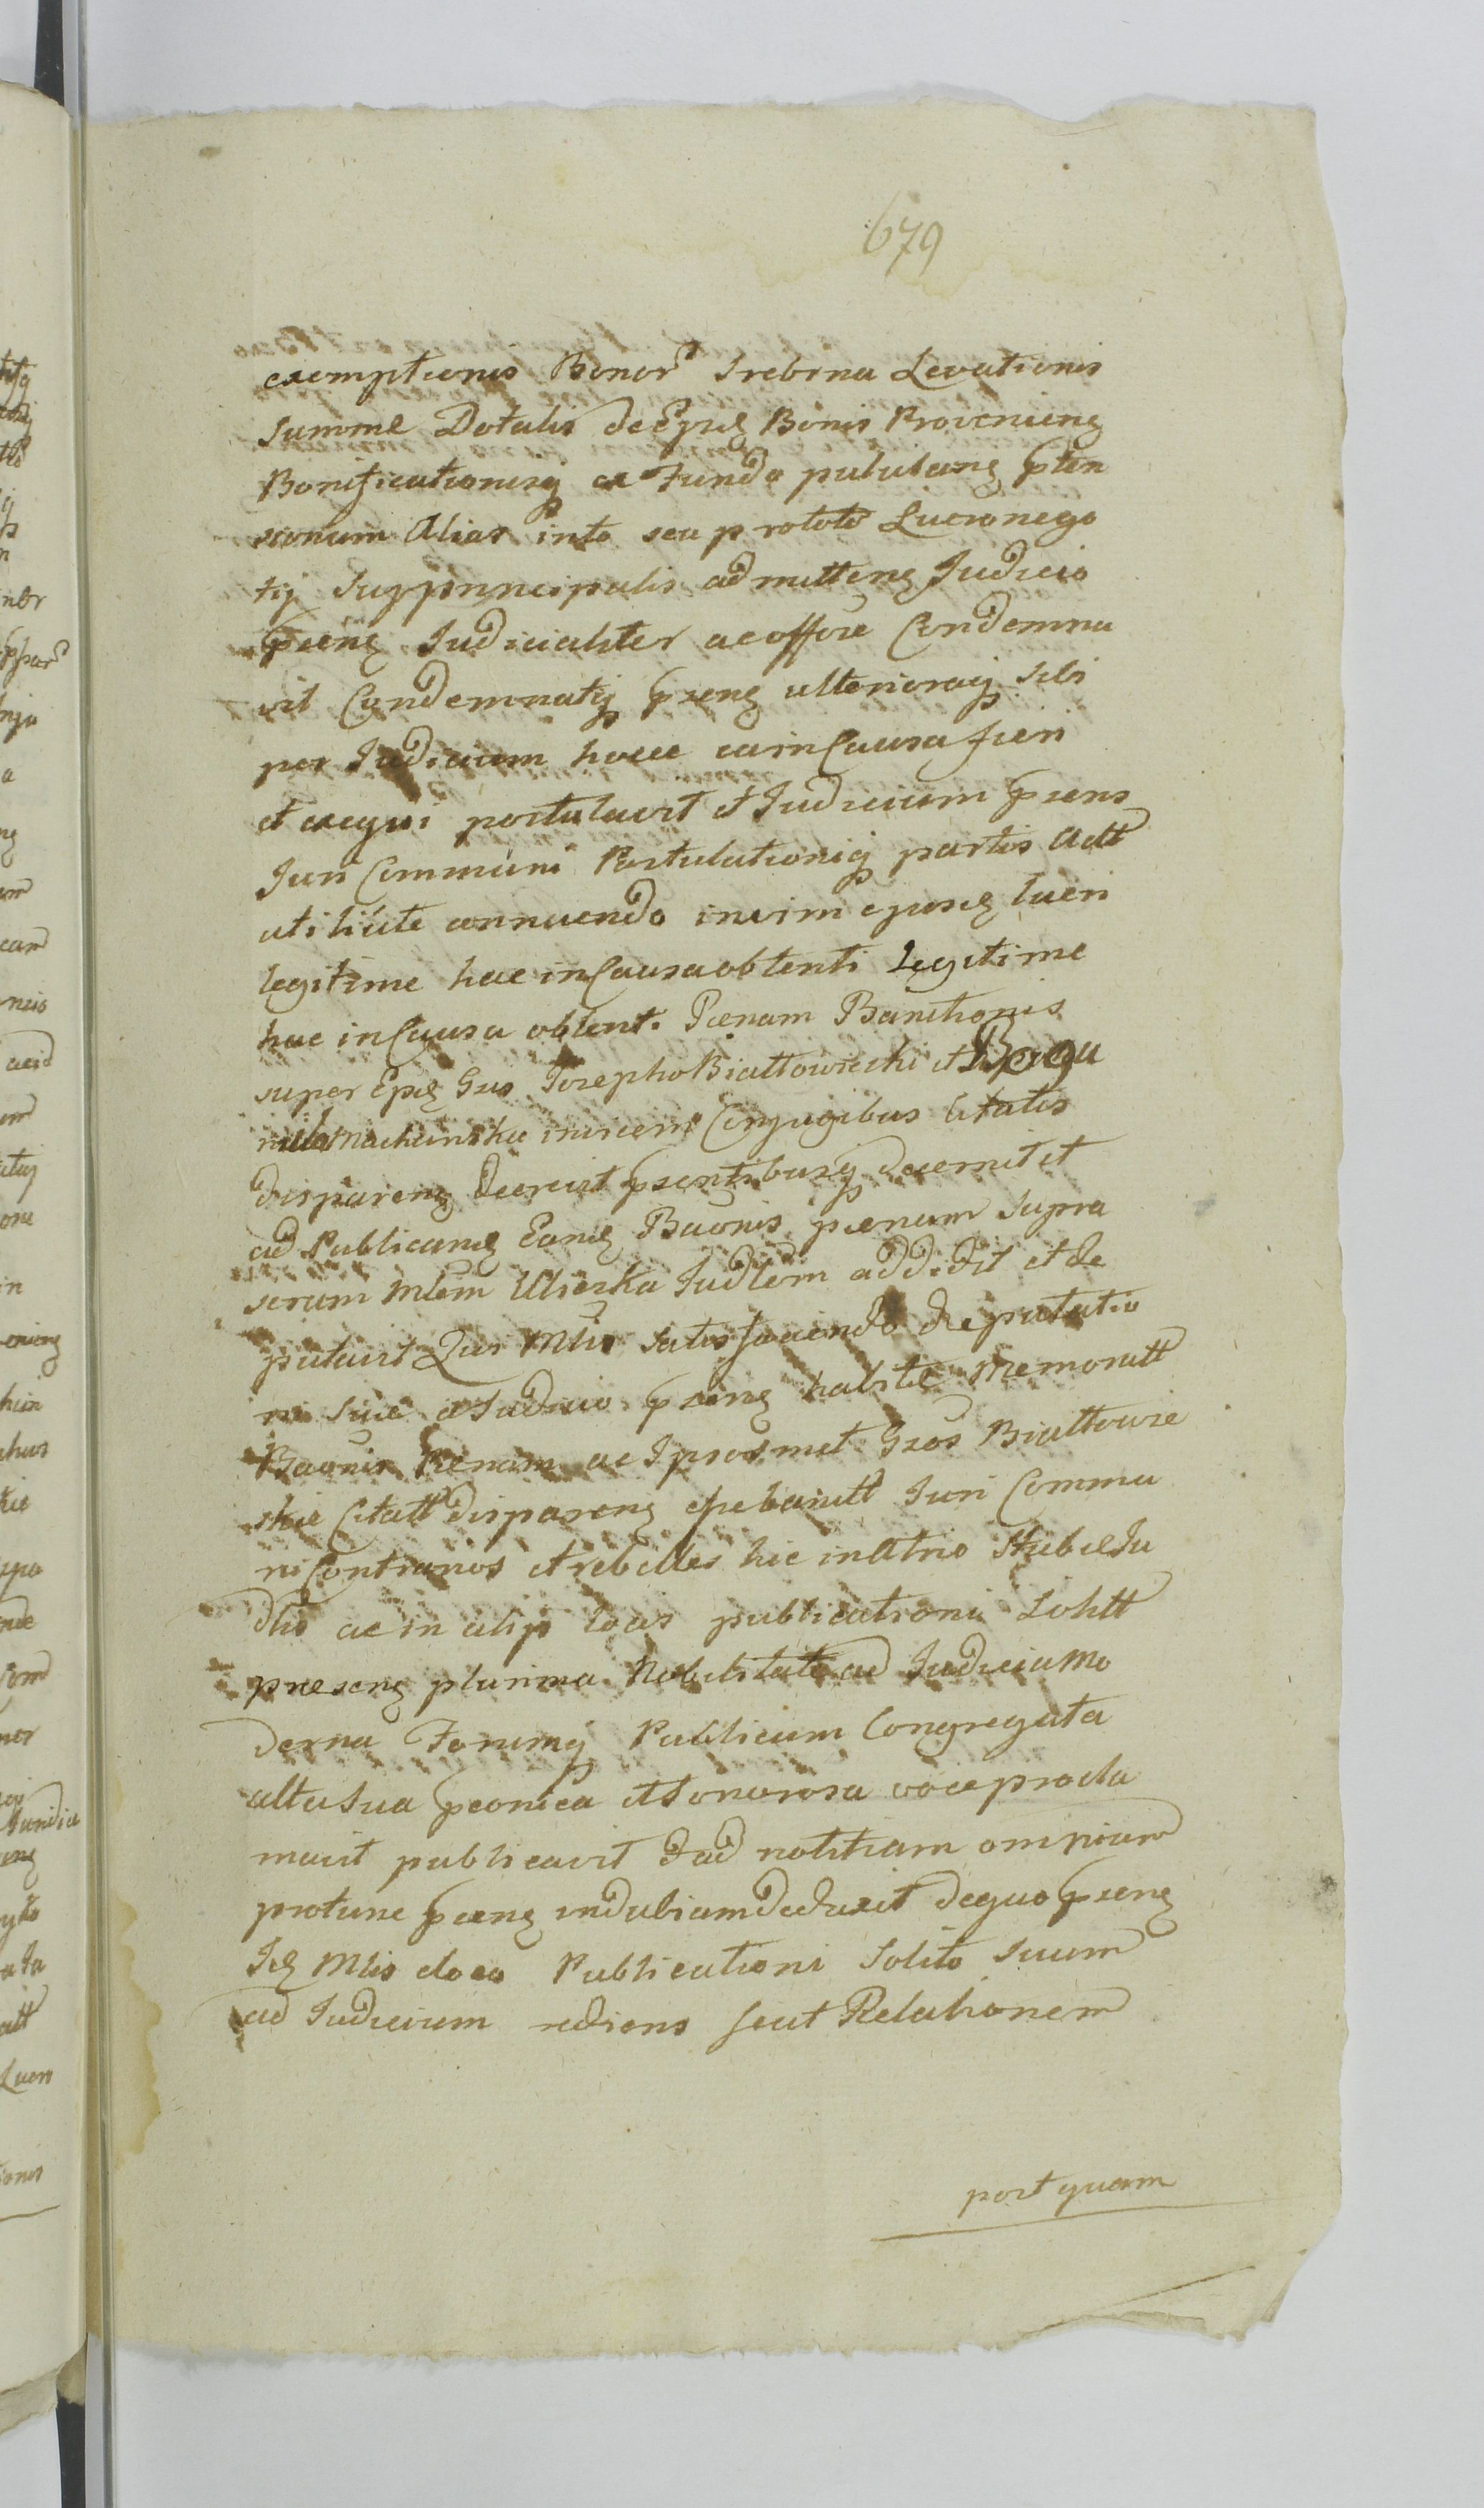 679
exemptionis Bonor Srebrna Levationis
Summe Dotalis de Epis Bonis Provenieng
Bonificationisq ex Fundo pululang pten
sionum Alias in to seu pro toto Lucro nego
tij Suy principalis admitteng Judicio
pseng Judicialiter ac offose Condemna
vit Condemnatq pseng ulterioraq Sibi
per Judicium hocce ea in Causa fieri
et exequi postulavit et Judicium psens
Juri Communi Postulationiq partis Actt
utilitte annuendo in vim ejusd lucri
legitime hac in Causa obtenti Legitime
hac in Causa obtent. Pænam Banitionis
super Epis Gsis Josepho Białłowieski et Bogu
miła Machcinska invicem Conjugibus Citatis
dispareng decrevit psentibusq decernit et
ad Publicand Eand Baonis pænam Supra
serum Mlem Uliezka Judlem addidit et de
putavit Qui Mlis Satisfaciendo deputatio
ni Sue a Judicio pseng habite Memoratt
Baonis Pænam ac Ipsosmet Gsos Białłowie
skie Citatt dispareng epebanitt Juri Commu
ni Contrarios et rebelles hic in Atrio Stubæ Ju
dlis ac in alijs locis publicationi Solitt
preseng plurima Nobilitate ad Judicia Mo
derna Forumq Publicum Congregata
alta Sua pconica et Sonorosa voce procla
mavit publicavit et ad notitiam omnium
protunc pseng indubiam deduxit de quo pseng
Id Mlis eloco Publicationi Solito Suum
ad Judicium rediens fecit Relationem
postquam